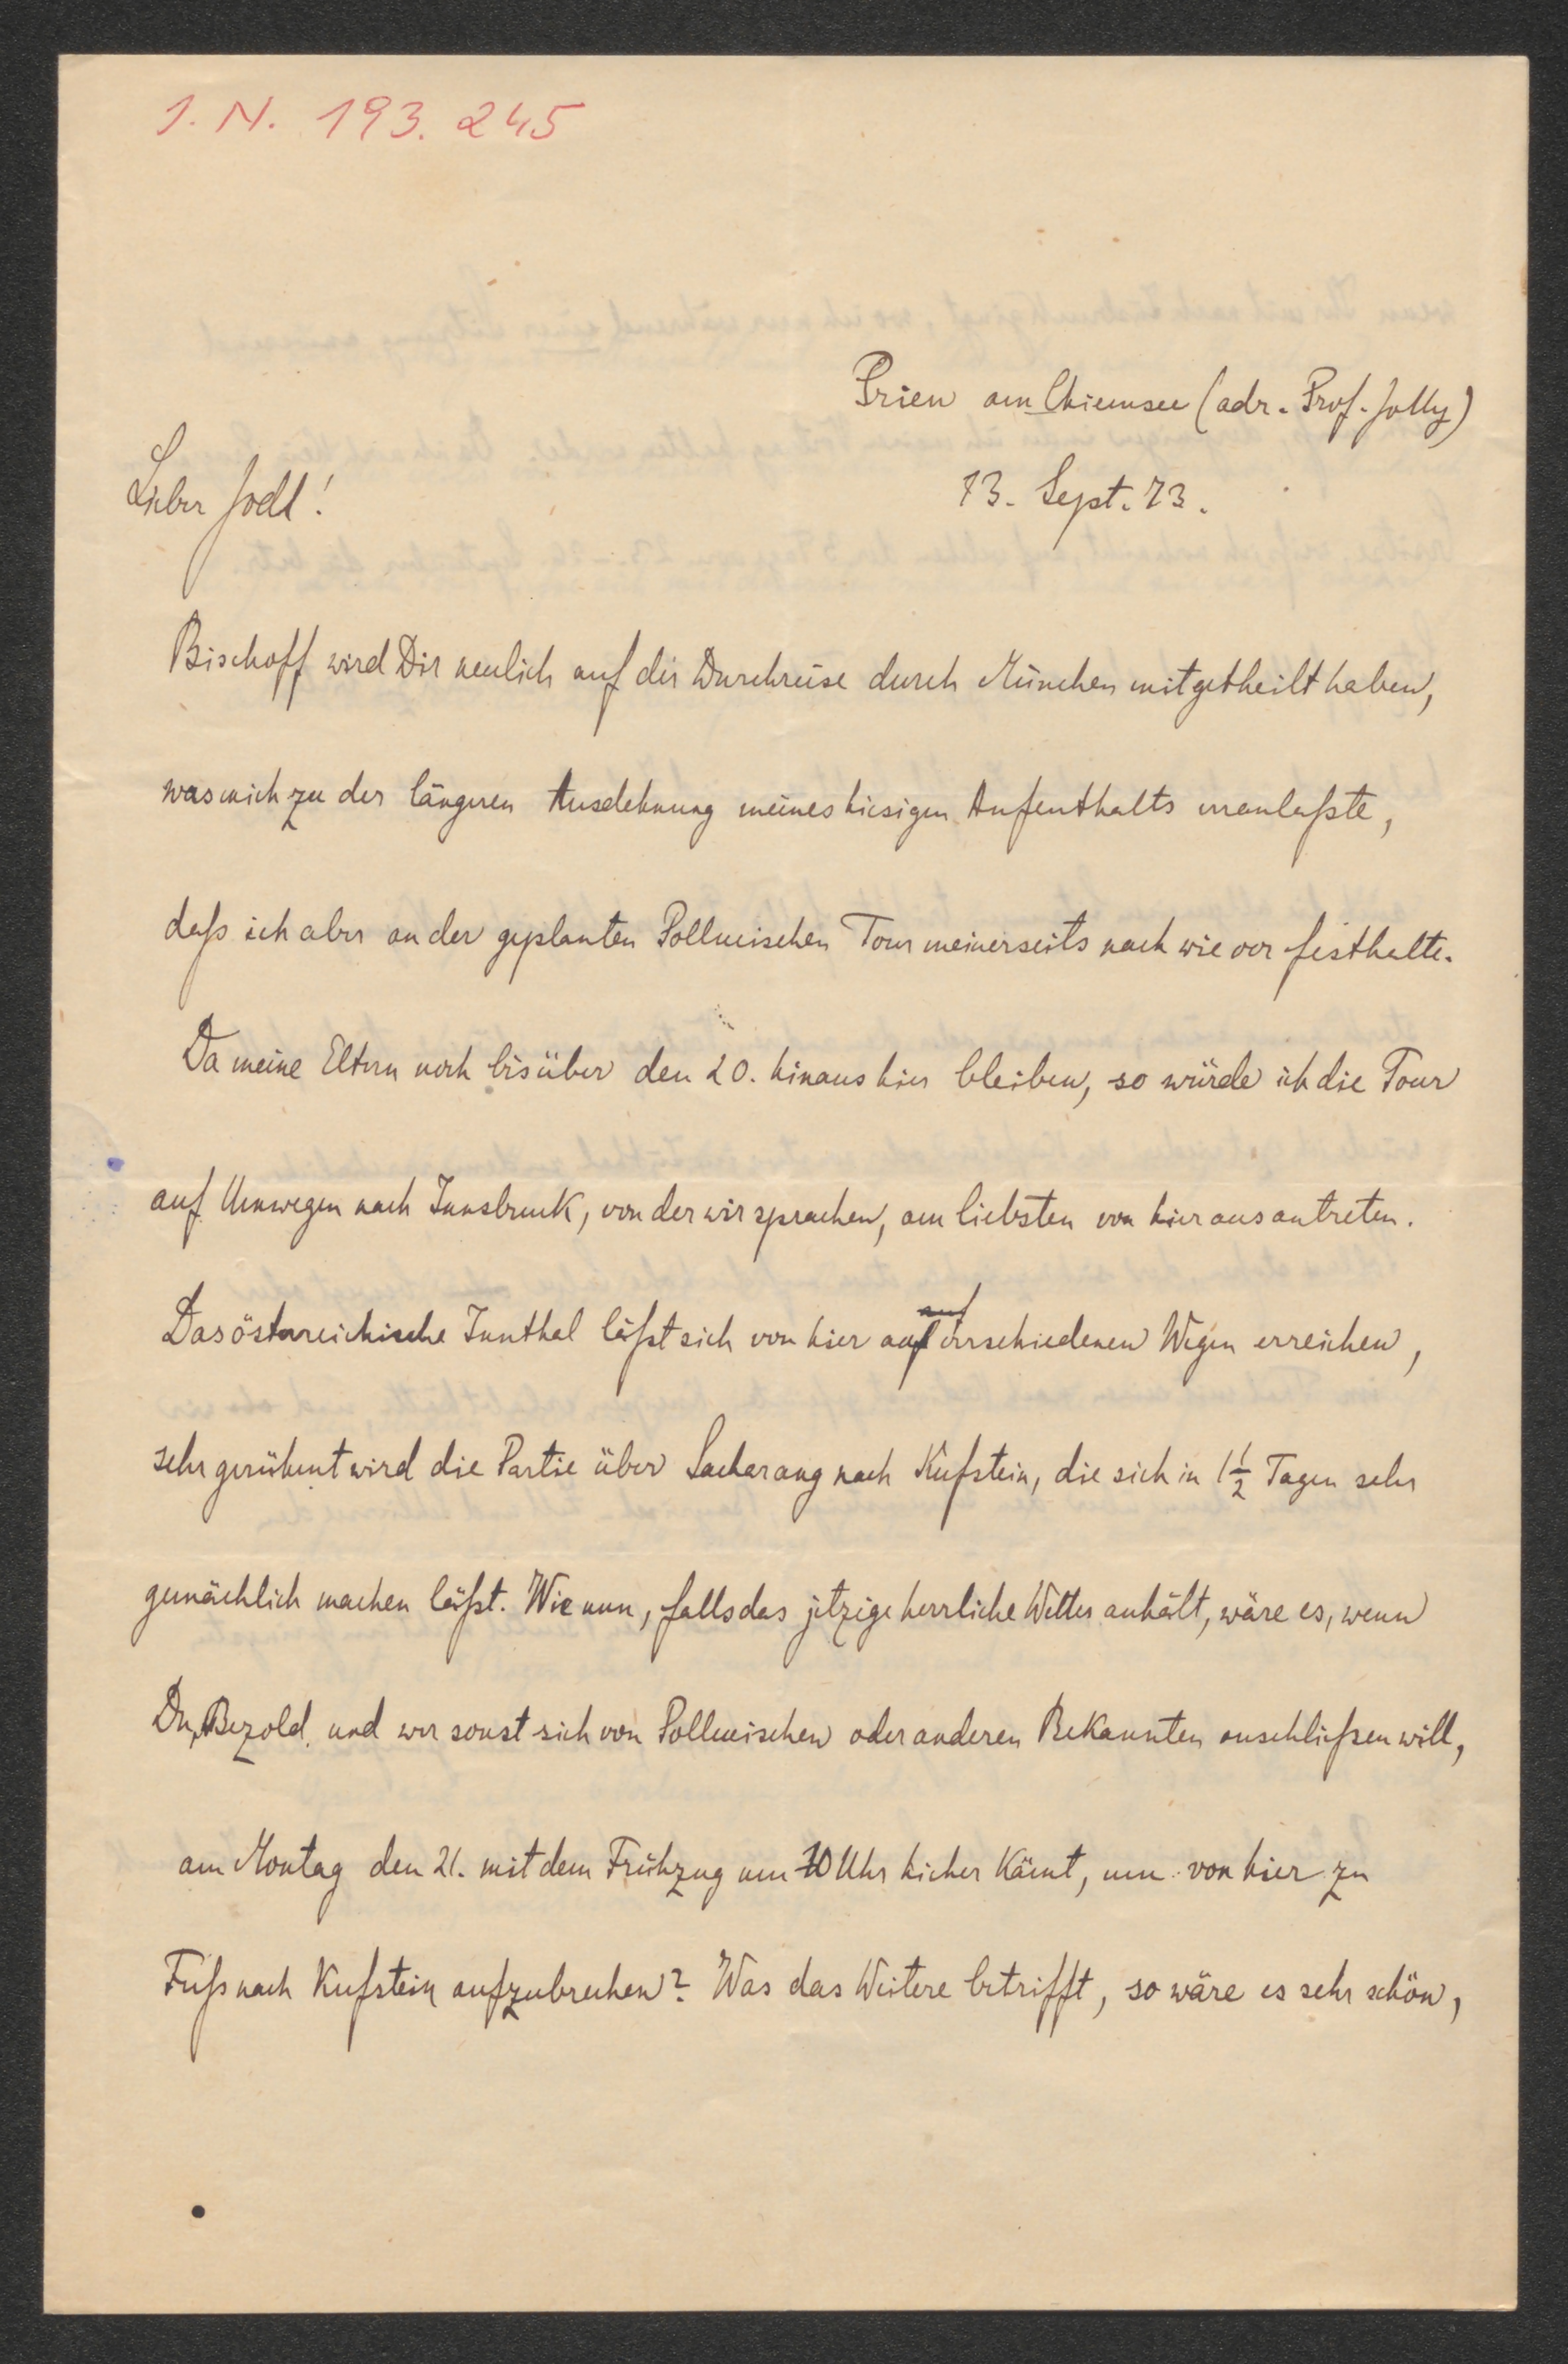 I. N. 193.245
Prien am Chiemsee (adr. Prof. Jolly)
Lieber Jodl!
13. Sept. 73.
Bischoff wird Dir neulich auf der Durchreise durch München mitgetheilt haben,
was mich zu der längeren Ausdehnung meines hiesigen Aufenthalts veranlaßte,
daß ich aber an der geplanten Pollweischen Tour meinerseits nach wie vor festhalte.
Da meine Eltern noch bis über den 20. hinaus hier bleiben, so würde ich die Tour
auf Umwegen nach Innsbruck, von der wir sprachen, am liebsten von hier aus antreten.
Das österreichische Innthal läßt sich von hier auf verschiedenen Wegen erreichen,
sehr gerühmt wird die Partie über Sacharang nach Kufstein, die sich in 1½ Tagen sehr
gemächlich machen läßt. Wie nun, falls das jetzige herrliche Wetter anhält, wäre es, wenn
Du, Bezold und wer sonst sich von Pollweischen oder anderen Bekannten anschließen will,
am Montag den 21. mit dem Frühzug um 10 Uhr hieher kämt, um von hier zu
Fuß nach Kufstein aufzubrechen? Was das Weitere betrifft, so wäre es sehr schön,